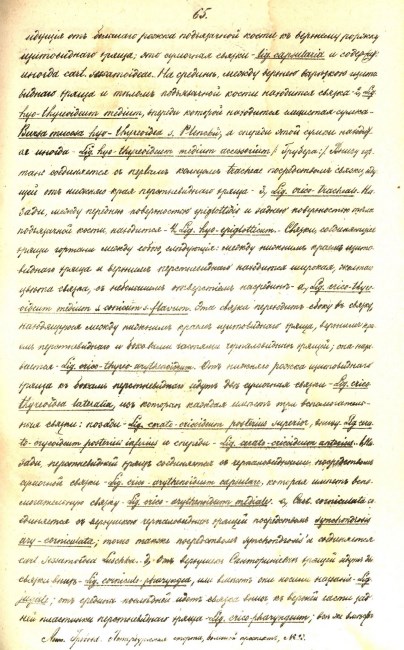 65.
идущiя отъ большаго рожка подъязычной кости къ верхнему рожку
щитовиднаго хряща; это сумочная связка - Lig. capsularia и содержит
иногда cart. sesamoideae. На срединѣ, между верхнею вырѣзкою щито-
виднаго хряща и тѣломъ подъязычной кости находится связка - Lig.
hyo-thyreoideum medium, впереди которой находится слизистая сумка -
Bursa mucosa hyo-thyreoidea s. , а спереди этой сумки находит-
ся иногда - Lig. hyo-thyreoideum medium accessorium /: Грубера :/. Внизу гор-
тань соединяется съ первымъ кольцомъ tracheae посредствомъ связки, иду-
щей отъ нижняго края перстневиднаго хряща - 3, Lig. crico-tracheale. На
зади, между переднею поверхностью epiglottidis и заднею поверхностью тѣла
подъязычной кости, находится - 4, Lig. hyo-epiglotticum. Связки, соединяющiя
хрящи гортани между собою, слѣдующiя: между нижнимъ краемъ щито-
виднаго хряща и верхнимъ перстневиднаго находится широкая, желтаго
цвѣта связка, съ небольшимъ отверстiемъ посрединѣ - a, Lig. crico-thyreo-
ideum medium s. conicum s. flavum. Эта связка переходитъ сбоку въ связку,
находящуюся между нижнимъ краемъ щитовиднаго хряща, верхнимъ кра-
емъ перстневиднаго и боковыми частями черпаловидныхъ хрящей; эта на-
зывается - Lig. crico-thyreo-arythenoideum. Отъ нижняго рожка щитовиднаго
хряща къ бокамъ перстневиднаго идутъ двѣ сумочныя связки - Lig. crico-
thyreoidea lateralia, изъ которыхъ каждая имѣетъ три вспомогатель-
ныя связки: позади - Lig. cerato-cricoideum posterius superior, внизу Lig. cera-
to-crycoideum posterius inferius и спереди - Lig. cerato-cricoideum anterius. На-
зади, перстневидный хрящъ соединяется съ черпаловидными посредствомъ
сумочной связки - Lig. crico-arythenoideum capsulare, которая имѣетъ вспо-
могательную связку - Lig. crico-arythenoideum mediale. Cart. corniculata со-
единяется съ верхушкою черпаловидныхъ хрящей посредствомъ synchondrosis
ary-corniculata; точно также посредствомъ synchondrosis и соединяется
cart. sesamoidea Luschka. Отъ верхушки Санторинiевыхъ хрящей идутъ двѣ
связки внизъ - Lig. corniculo-pharyngea, или вмѣстѣ они носятъ названiе - Lig.
jugale; отъ средины послѣдней идетъ связка внизъ къ верхней части зад-
ней пластинки перстневиднаго хряща - Lig. crico-pharyngeum;